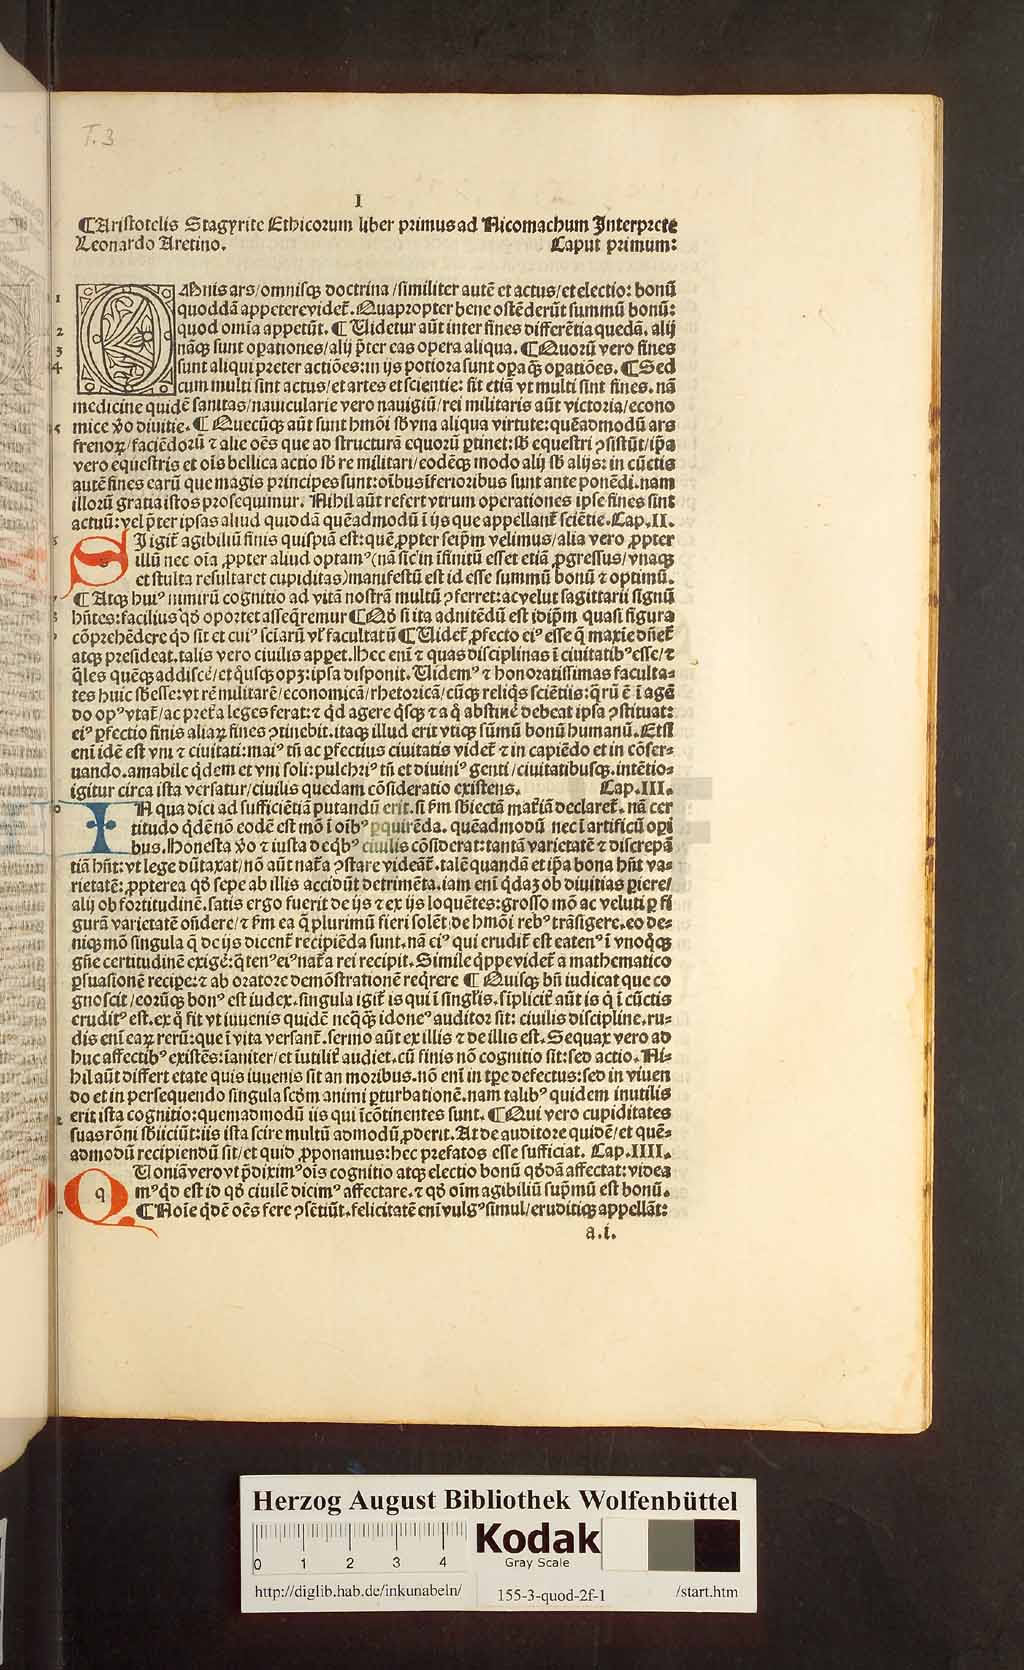 T. 3
I
¶Aristotelis Stagyrite Ethicorum liber primus ad Nicomachum Interprete
Leonardo Aretino. Caput primum:
OMnis ars/omnisqꝫ doctrina/similiter autē et actus/et electio: bonū
quoddā appetere videt̄. Quapropter bene ostēderūt summū bonū:
quod omīa appetūt. ¶ Uidetur aūt inter fines differētia quedā. alij
nāqꝫ sunt oꝑationes/alij p̄ter eas opera aliqua. ¶Quorū vero fines
sunt aliqui preter actiōes: in ijs potiora sunt oꝑa qꝫ oꝑatiōes. ¶Sed
cum multi sint actus/et artes et scientie: fit etiā vt multi sint fines. nā
medicine quidē sanitas/nauicularie vero nauigiū/rei militaris aūt victoria/econo
mice v̄o diuitie. ¶ Quecūqꝫ aūt sunt hmōi sb̄ vna aliqua virtute: quēadmodū ars
frenoꝝ/faciēdorū ⁊ alie oēs que ad structurā equorū ꝑtinet: sb̄ equestri ꝯsistūt/ip̄a
vero equestris et oīs bellica actio sb̄ re militari/eodēqꝫ modo alij sb̄ alijs: in cūctis
autē fines earū que magis principes sunt: oībus īferioribus sunt ante ponēdi. nam
illorū gratia istos prosequimur. Nihil aūt refert vtrum operationes ipse fines sint
actuū: vel p̄ter ipsas aliud quoddā quēadmodū ī ijs que appellant̄ sciētie. Cap. II.
SI igit̄ agibiliū finis quispiā est: quē ꝓpter seip̄m velimus/alia vero ꝓpter
illū nec oīa ꝓpter aliud optamꝰ (nā sic in īfinitū esset etiā ꝓgressus/vnaqꝫ
et stulta resultaret cupiditas) manifestū est id esse summū bonū ⁊ optimū.
¶ Atqꝫ huiꝰ nimirū cognitio ad vitā nostrā multū ꝯferret: ac velut sagittarii signū
hn̄tes: facilius qd̄ oportet asseq̄remur ¶Qd̄ si ita admitēdū est idip̄m quasi figura
cōprehēdere qd̄ sit et cuiꝰ sciarū vl̓ facultatū ¶Uidet̄ ꝓfecto eiꝰ esse q̄ maxie dn̄et̄
atqꝫ presideat. talis vero ciuilis apꝑet. Hec enī ⁊ quas disciplinas ī ciuitatibꝰ esse/⁊
q̄les quēqꝫ addisce̓/et q̄usqꝫ opꝫ: ipsa disponit. Uidemꝰ ⁊ honoratissimas faculta⸗
tes huic sb̄esse: vt rē militarē/economicā/rhetoricā/cūqꝫ reliq̄s sciētiis: q̄ rū ē ī agē
do opꝰ vtat̄/ac pret̄a leges ferat: ⁊ qd̄ agere q̄sqꝫ ⁊ a q̄ abstine̓ debeat ipsa ꝯstituat:
eiꝰ ꝑfectio finis aliaꝝ fines ꝯtinebit. itaqꝫ illud erit vtiqꝫ sūmū bonū humanū. Etsi
enī idē est vni ⁊ ciuitati: maiꝰ tn̄ ac ꝑfectius ciuitatis videt̄ ⁊ in capiēdo et in cōser⸗
uando. amabile q̄dem et vni soli: pulchriꝰ tn̄ et diuiniꝰ genti/ciuitatibusqꝫ. intētio⸗
igitur circa ista versatur/ciuilis quedam cōsideratio existens. Cap. III.
IN qua dici ad sufficiētiā putandū erit. si ꝑm sb̄iectā mat̄iā declaret̄. nā cer
titudo q̄dē nō eodē est mō ī oībꝰ ꝑquirēda. quēadmodū nec ī artificū opī
bus. Honesta v̄o ⁊ iusta de qbꝰ ciuilis cōsiderat: tantā varietatē ⁊ discrepā
tiā hn̄t: vt lege dūtaxat/nō aūt nat̄a ꝯstare videāt̄. talē quandā et ip̄a bona hn̄t va⸗
rietatē: ꝓpterea qd̄ sepe ab illis accidūt detrimēta. iam enī q̄daꝫ ob diuitias ꝑiere/
alij ob fortitudinē. satis ergo fuerit de ijs ⁊ ex ijs loquētes: grosso mō ac veluti ꝑ fi
gurā varietatē on̄dere/⁊ ꝑm ea q̄ plurimū fieri solēt: de hmōi rebꝰ trāsigere. eo de⸗
niqꝫ mō singula q̄ de ijs dicent̄ recipiēda sunt. nā eiꝰ qui erudit̄ est eatenꝰ ī vnoq̄qꝫ
gn̄e certitudinē exige̓: q̄tenꝰ eiꝰ nat̄a rei recipit. Simile q̄ppe videt̄ a mathematico
ꝑsuasionē recipe̓: ⁊ ab oratore demōstrationē req̄rere ¶ Quisqꝫ bn̄ iudicat que co
gnoscit/eorūqꝫ bonꝰ est iudex. singula igit̄ is qui ī singl̓is. siplicit̄ aūt is q̄ ī cūctis
eruditꝰ est. ex q̄ fit vt iuuenis quidē neq̄qꝫ idoneꝰ auditor sit: ciuilis discipline. ru⸗
dis enī eaꝝ rerū: que ī vita versant̄. sermo aūt ex illis ⁊ de illis est. Sequax vero ad
huc affectibꝰ existēs: īaniter/et īutilit̄ audiet. cū finis nō cognitio sit: sed actio. Ni⸗
hil aūt differt etate quis iuuenis sit an moribus. nō enī in tꝑe defectus: sed in viuen
do et in persequendo singula scd̄m animi ꝑturbationē. nam talibꝰ quidem inutilis
erit ista cognitio: quemadmodū iis qui īcōtinentes sunt. ¶Qui vero cupiditates
suas rōni sb̄iiciūt: iis ista scire multū admodū ꝓderit. At de auditore quidē/et quē⸗
admodū recipiendū sit/et quid ꝓponamus: hec prefatos esse sufficiat. Cap. IIII.
QUoniā vero vt p̄diximꝰ oīs cognitio atqꝫ electio bonū qd̄dā affectat: videa
mꝰ qd̄ est id qd̄ ciuilē dicimꝰ affectare. ⁊ qd̄ oīm agibiliū sup̄mū est bonū.
¶Noīe q̄dē oēs fere ꝯsētiūt. felicitatē enī vulgꝰ simul/eruditiqꝫ appellāt:
a.i.
Herzog August Bibliothek Wolfenbüttel
Kodak
Gray Scale
0 1 2 3 4
http://diglib.hab.de/inkunabeln/ 155-3-quod-2f-1 /start.htm